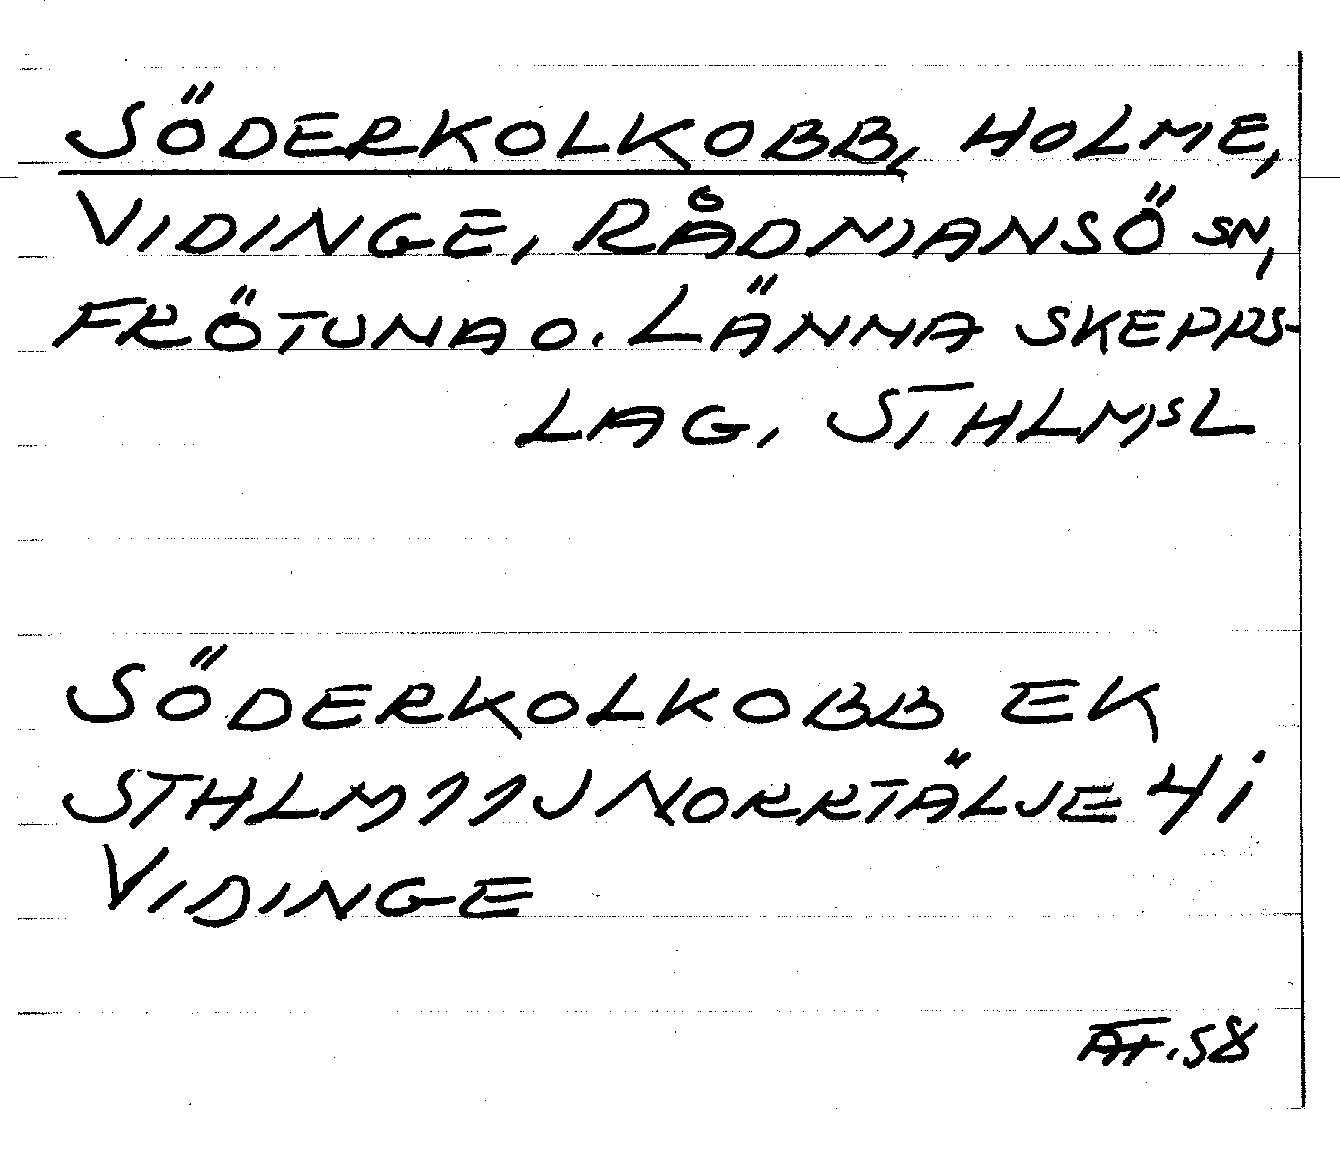 SÖDERKOLKOBB, HOLME,
VIDINGE, RÅDMANSÖ SN,
FRÖTUNA O. LÄNNA SKEPPS-
LAG, STHLMSL
SÖDERKOLKOBB EK
STHLM 11J NORRTÄLJE 4i
VIDINGE
58